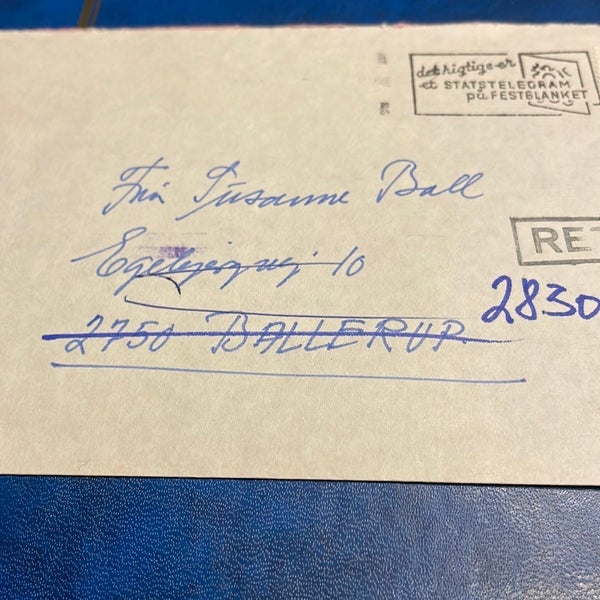 det rigtige er
et STATSTELEGRAM
på FESTBLANKET
Susanne Ball
RE
10
2830
2750 BALLERUP